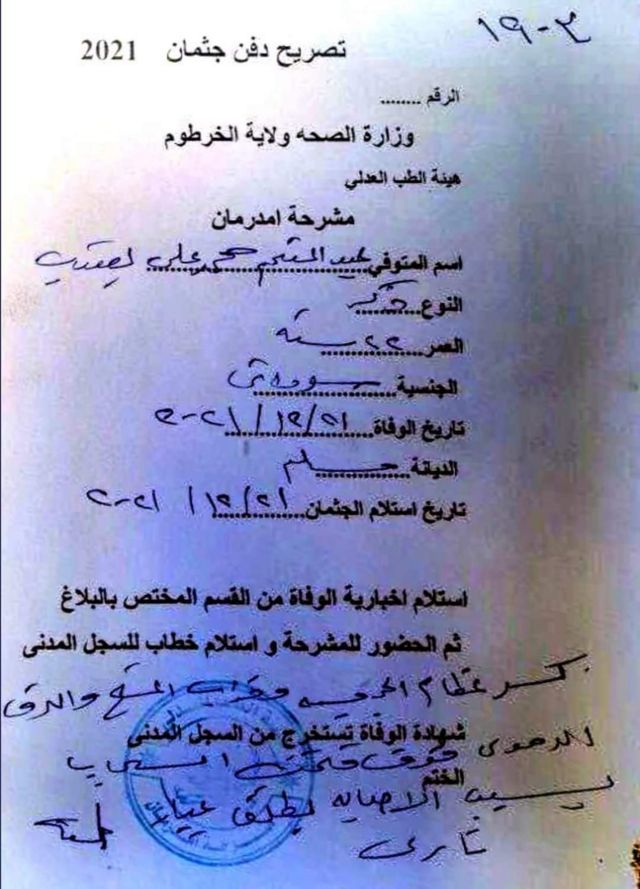 ١٩-٣
تصريح دفن جثمان 2021
الرقم ........
وزارة الصحه ولاية الخرطوم
هيئة الطب العدلي
مشرحة امدرمان
اسم المتوفي عبد المنعم محمد علي
النوع ذكر
العمر ٢٢ سنه
الجنسية سوداني
تاريخ الوفاة ٢٠٢١/١٢/٢١
الديانة مسلم
تاريخ استلام الجثمان ٢٠٢١/١٢/٢١
استلام اخبارية الوفاة من القسم المختص بالبلاغ
ثم الحضور للمشرحة و استلام خطاب للسجل المدنى
كسر عظام الجمجمه و
شهادة الوفاة تستخرج من السجل المدنى
الدموى
الختم
بسبب الاصابه بطلق
نارى